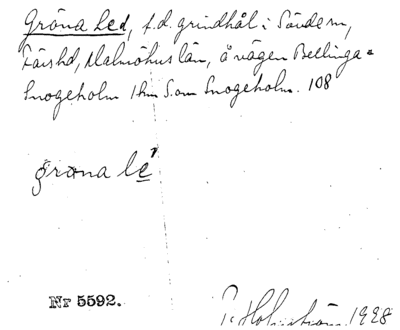 Gröna Led, f.d. grindhål i Sövde sn,
Färs hd, Malmöhus län, å vägen Bellinga-
Snogeholm 1 km S. om Snogeholm. 108
gröna lé
Nr 5592.
P. Holmström 1928